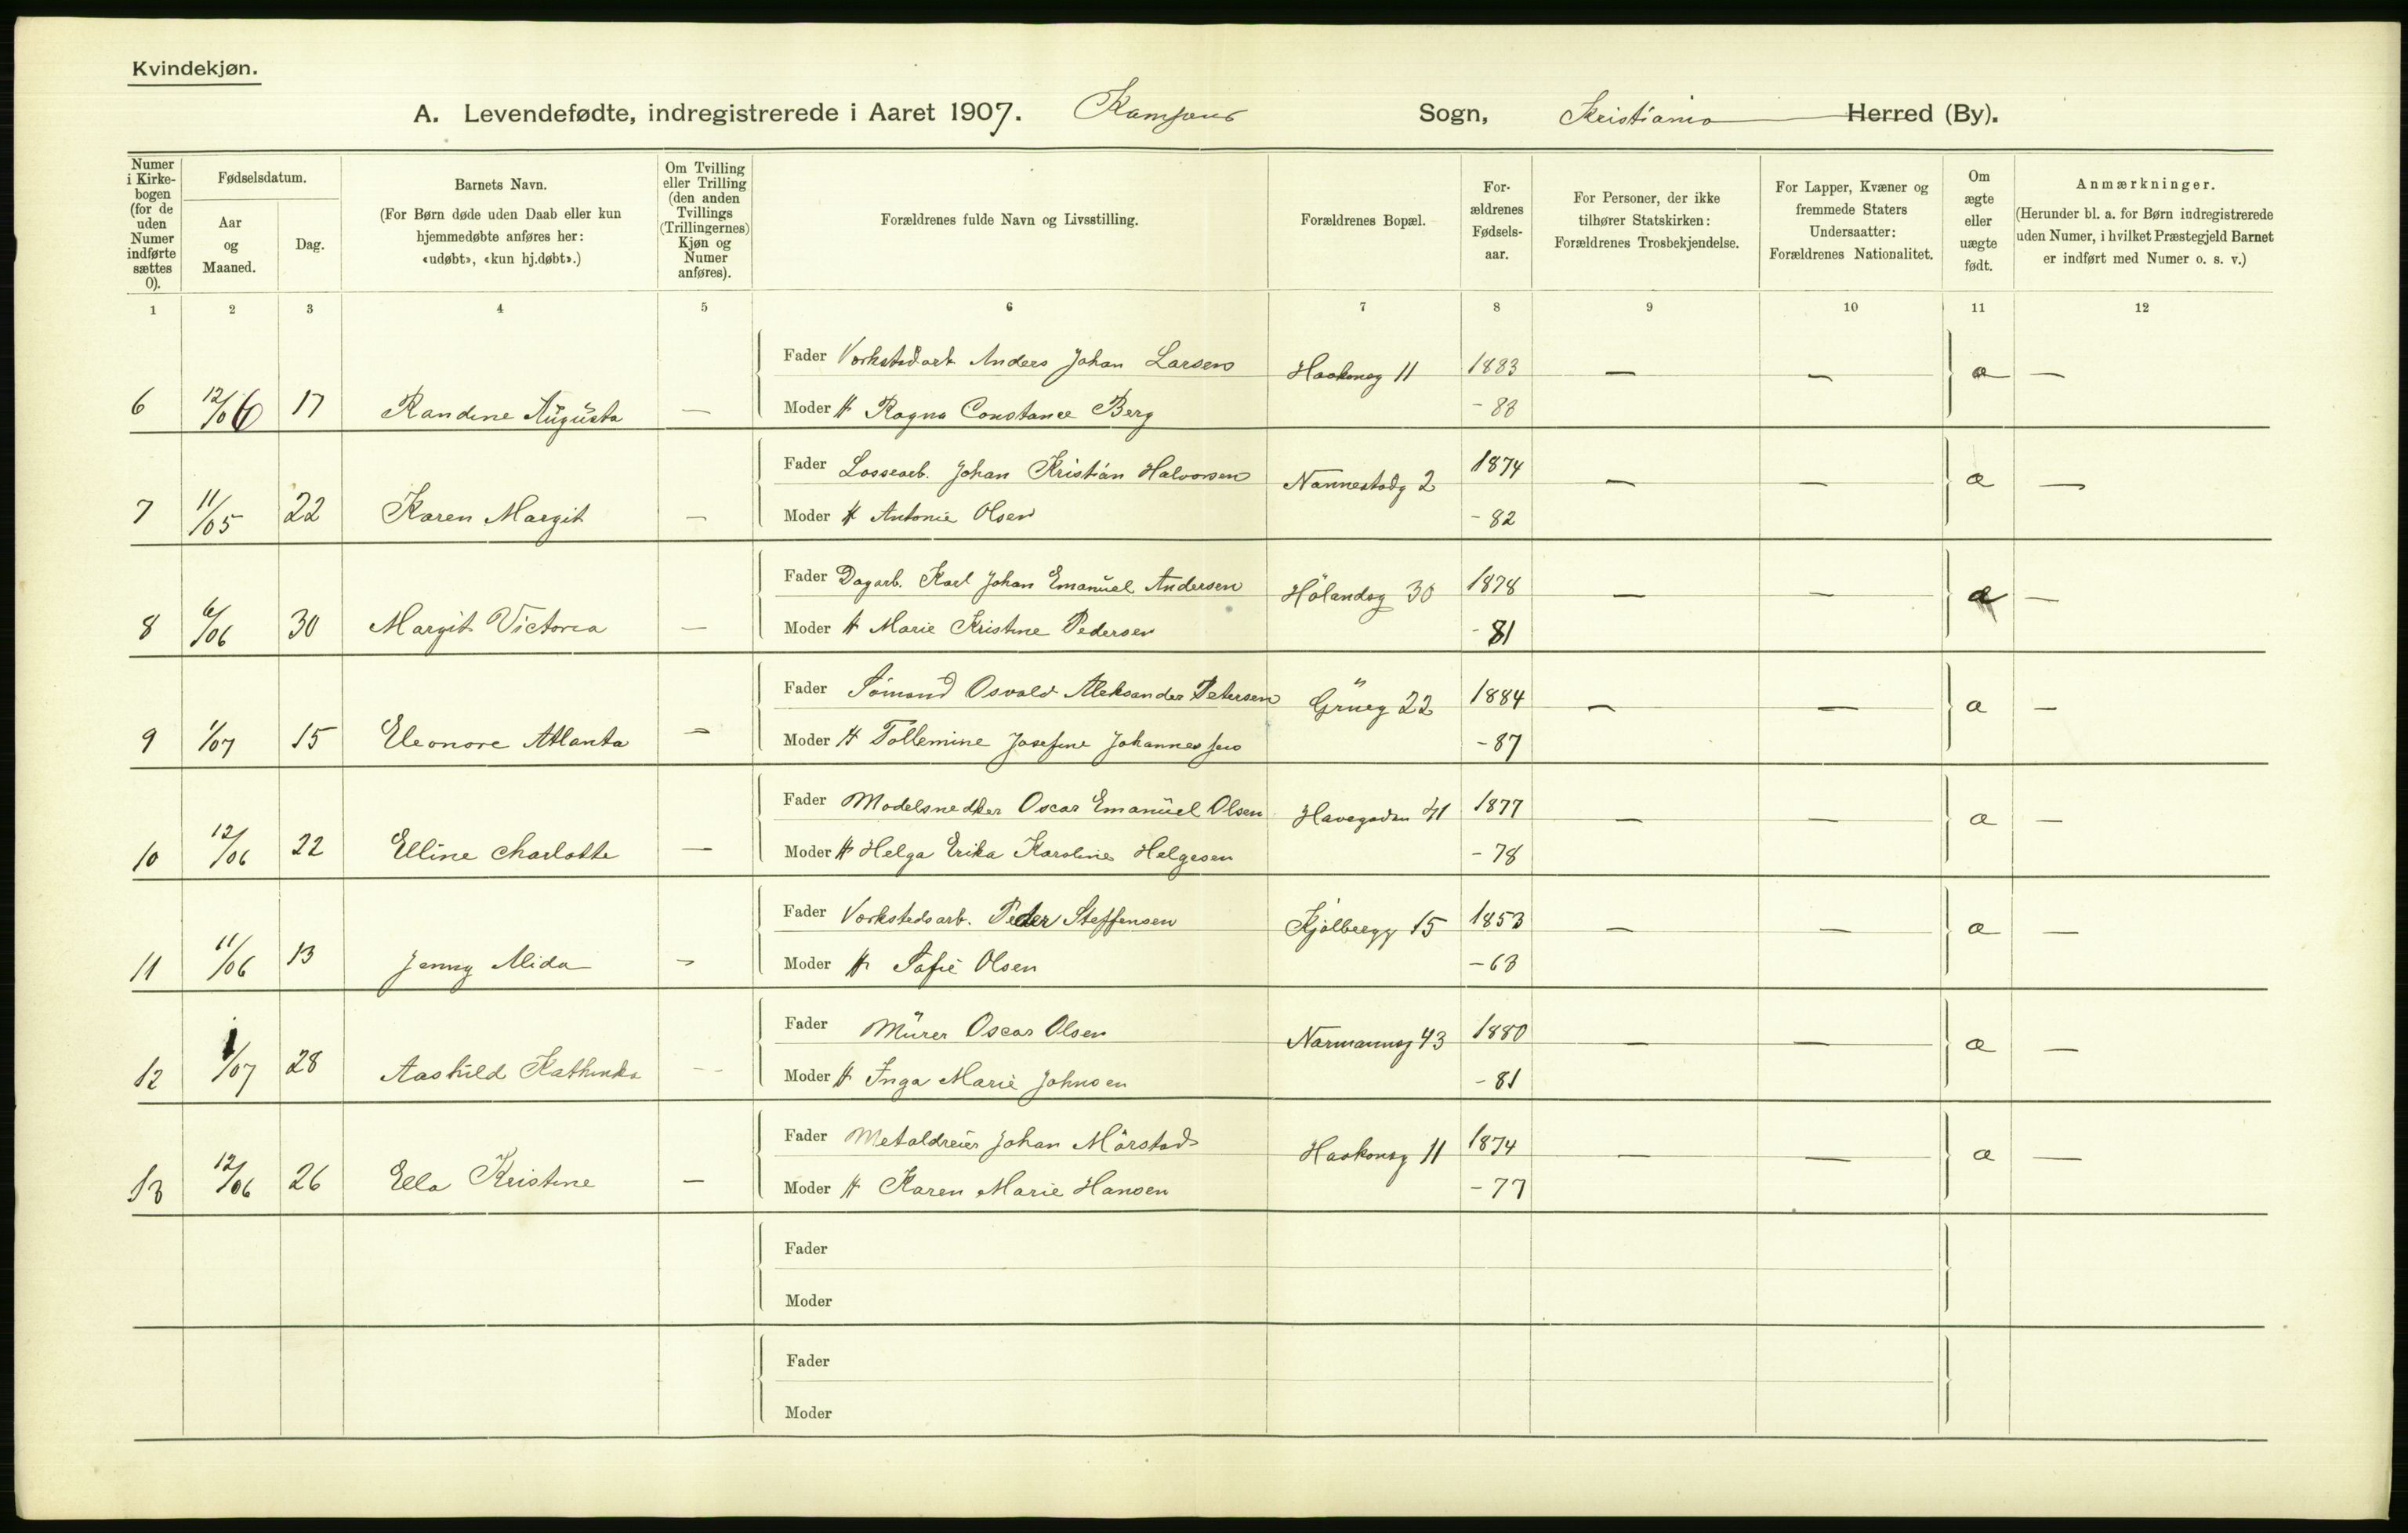 Kvindekjøn.
A. Levendefødte, indregistrerede i Aaret 1907. Kampens Sogn, Kristiania Herred (By).
Numer i Kirkebogen (for de uden Numer indførte sættes 0).
Fødselsdatum.
Aar og Maaned.
Dag.
Barnets Navn.
(For Børn døde uden Daab eller kun hjemmedøbte anføres her: «udøbt», «kun hj.døbt».)
Om Tvilling eller Trilling (den anden Tvillings (Trillingernes) Kjøn og Numer anføres).
Forældrenes fulde Navn og Livsstilling.
Forældrenes Bopæl.
Forældrenes Fødselsaar.
For Personer, der ikke tilhører Statskirken: Forældrenes Trosbekjendelse.
For Lapper, Kvæner og fremmede Staters Undersaatter: Forældrenes Nationalitet.
Om ægte eller uægte født.
Anmærkninger.
(Herunder bl. a. for Børn indregistrerede uden Numer, i hvilket Præstegjeld Barnet er indført med Numer o. s. v.)
1 2 3 4 5 6 7 8 9 10 11 12
6 12/06 17 Randine Augusta — Fader Verkstedarb Anders Johan Larsen Haakonsg 11 1883 — — a —
Moder H Ragna Constance Berg - 83
7 11/05 22 Karen Margit — Fader Lossearb. Johan Kristian Halvorsen Nannestadg 2 1874 — — a —
Moder H Antonie Olsen - 82
8 6/06 30 Margit Victoria — Fader Dagarb. Karl Johan Emanuel Andersen Hölandsg 30 1878 — — a —
Moder H Marie Kristine Pedersen - 81
9 1/07 15 Eleonore Atlanta — Fader Sömand Osvald Aleksander Petersen Grueg 22 1884 — — a —
Moder H Tollemine Josefine Johannessen - 87
10 12/06 22 Elline Charlotte — Fader Modelsnedker Oscar Emanuel Olsen Havegaden 41 1877 — — a —
Moder H Helga Erika Karoline Helgesen - 78
11 11/06 13 Jenny Alida — Fader Verkstedsarb. Peder Steffensen Kjölbergg 15 1853 — — a —
Moder H Sofie Olsen - 63
12 1/07 28 Aashild Kathinka — Fader Murer Oscar Olsen Normannsg 43 1880 — — a —
Moder H Inga Marie Johnsen - 81
13 12/06 26 Ella Kristine — Fader Metaldreier Johan Mörstad Haakonsg 11 1874 — — a —
Moder H Karen Marie Hansen - 77
Fader
Moder
Fader
Moder